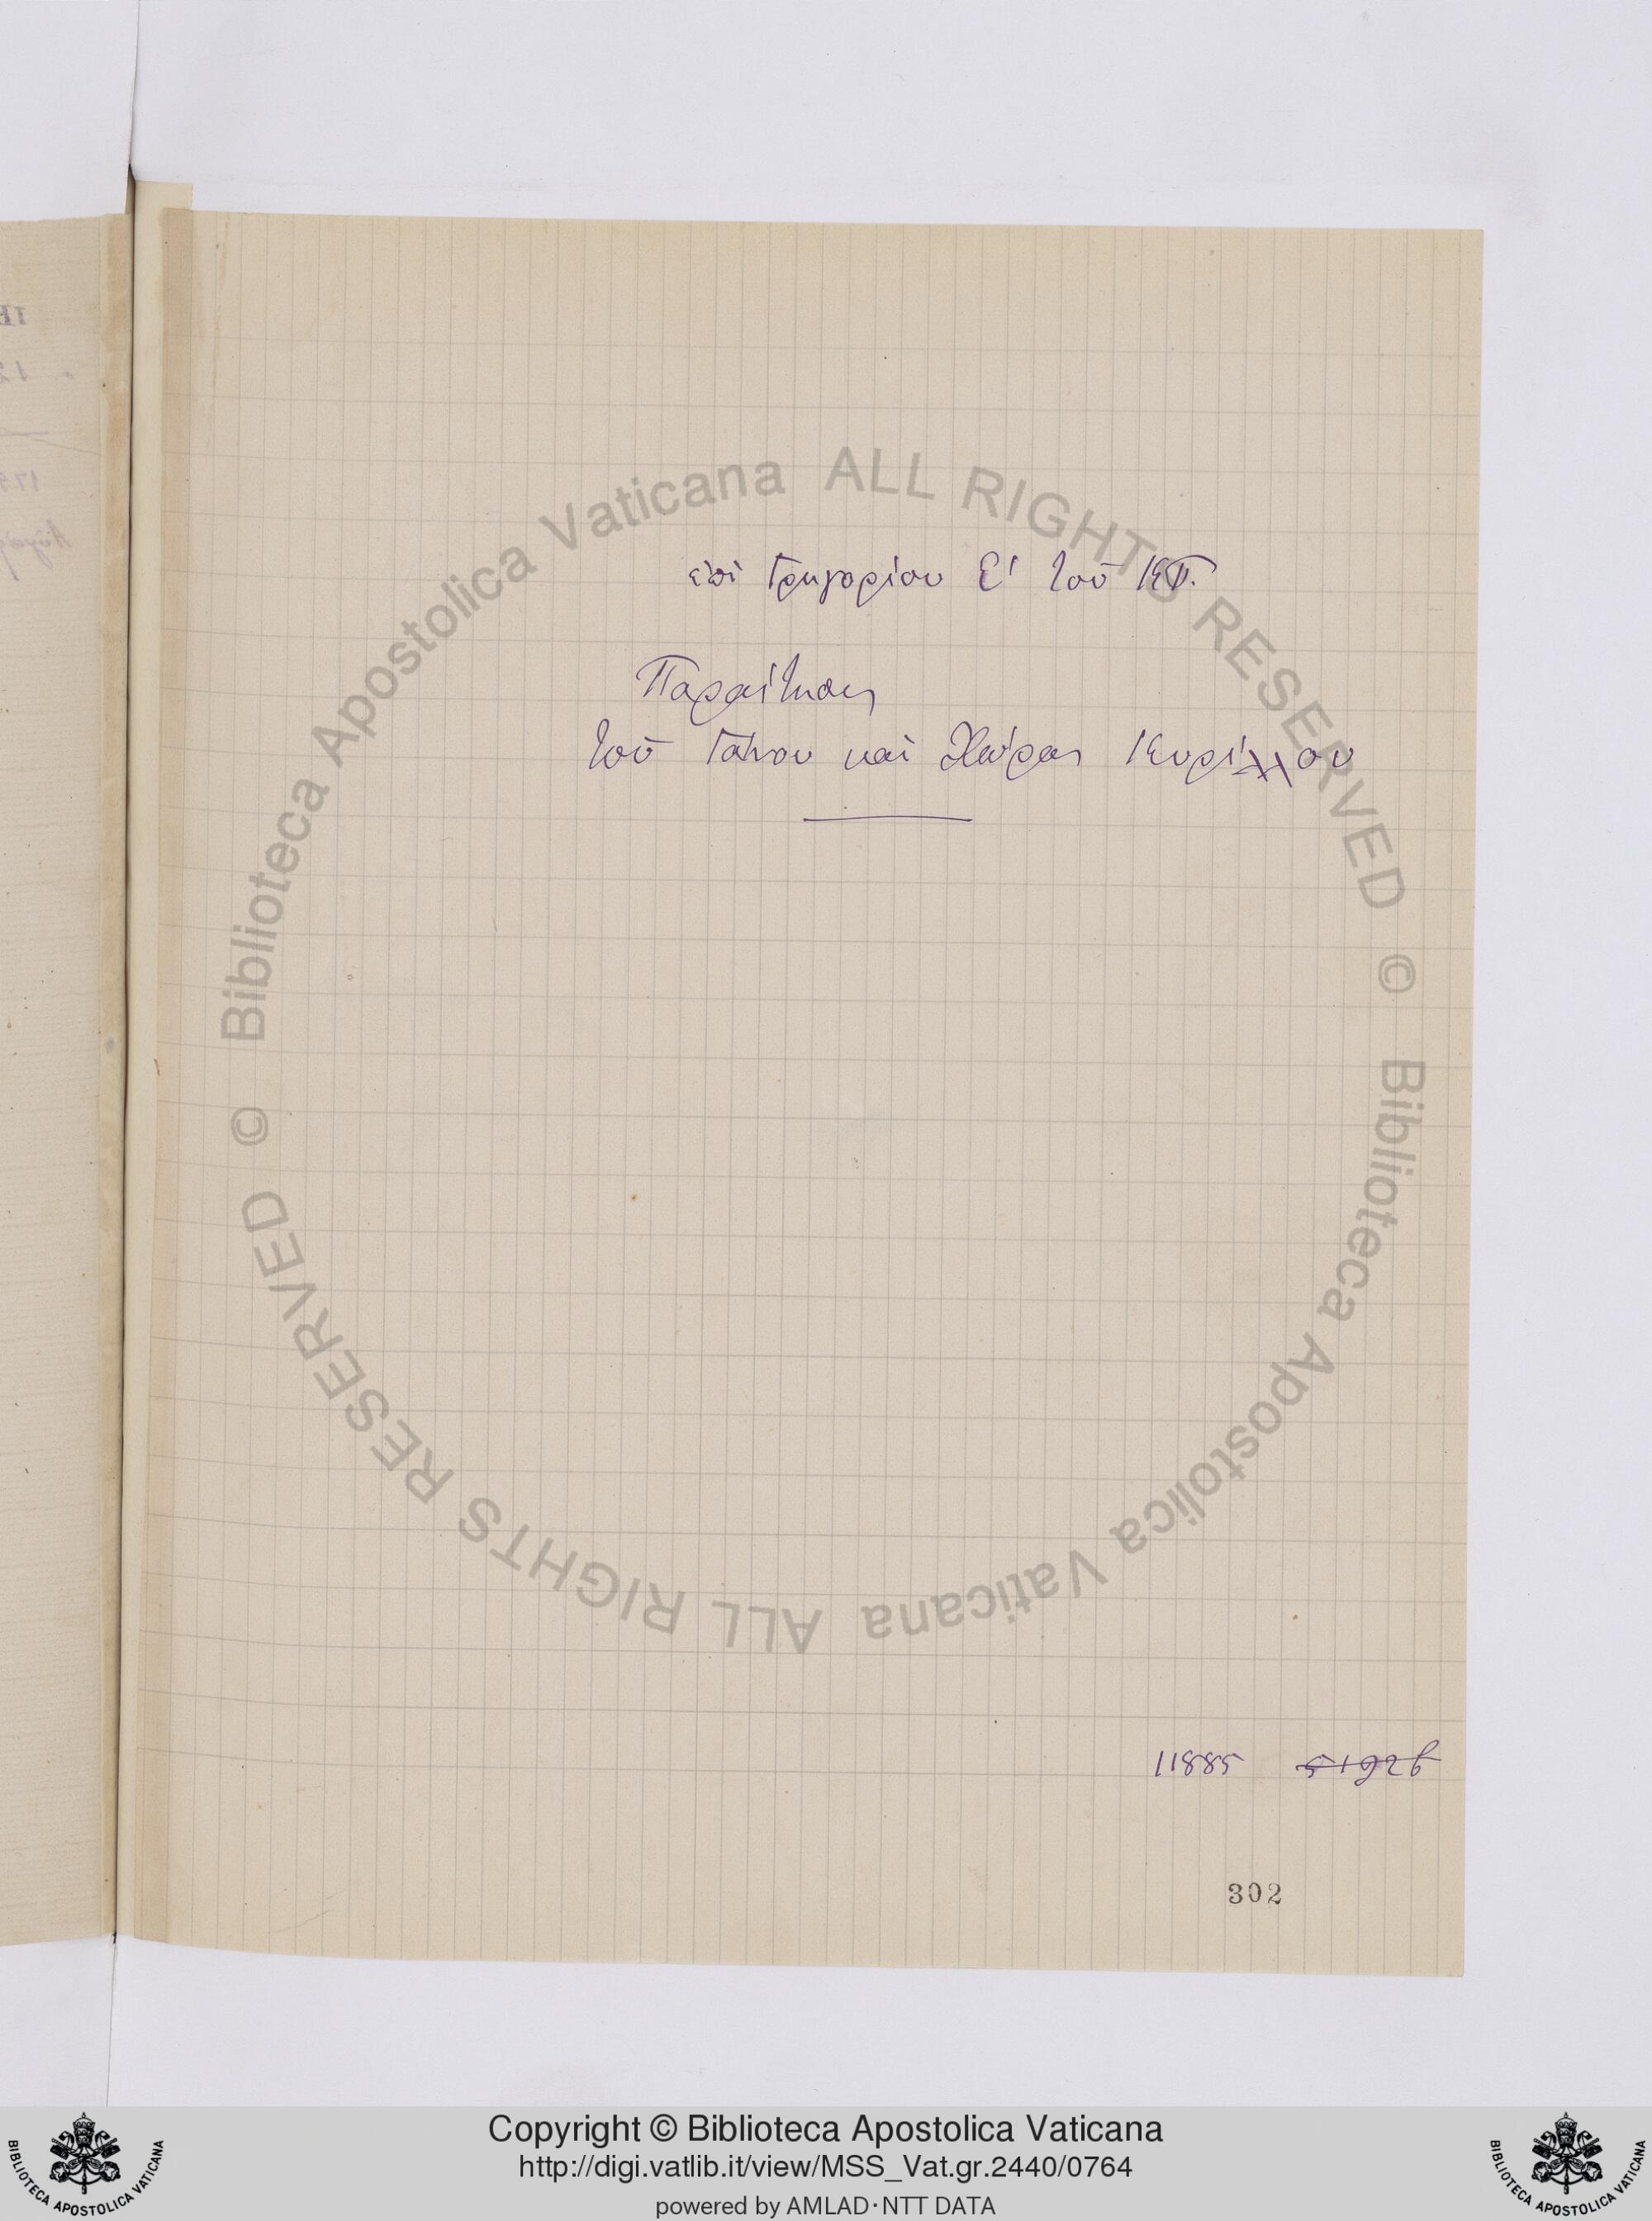 ἐπὶ Γρηγορίου Εʹ τοῦ ΚΠ.
Παραίτησις
τοῦ Γάνου καὶ Χώρας Κυρίλλου
11885
302
Biblioteca Apostolica Vaticana ALL RIGHTS RESERVED ©
Biblioteca Apostolica Vaticana ALL RIGHTS RESERVED ©
Copyright © Biblioteca Apostolica Vaticana
http://digi.vatlib.it/view/MSS_Vat.gr.2440/0764
powered by AMLAD·NTT DATA
BIBLIOTECA APOSTOLICA VATICANA
BIBLIOTECA APOSTOLICA VATICANA